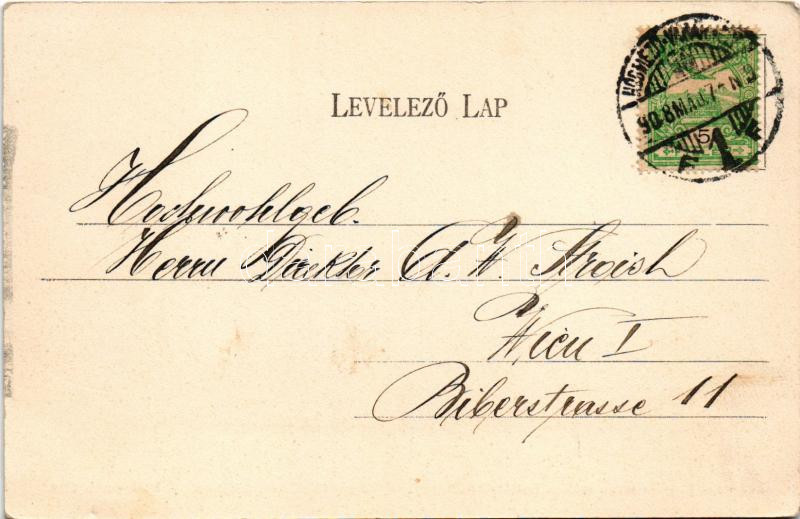 LEVELEZŐ LAP
908 MÁJ. 7 - N 9
5
F 1 F
Hochwohlgeb.
Herrn Direktor A. W.
Wien I
Biberstrasse 11